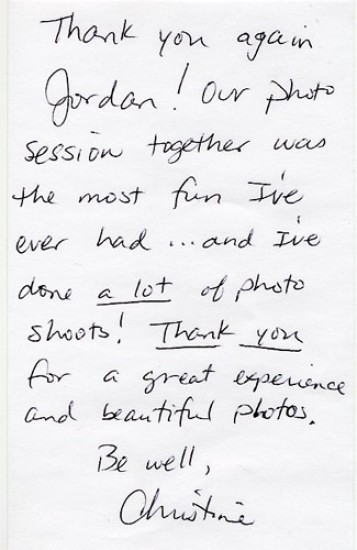 Thank you again
Jordan! Our photo
session together was
the most fun I've
ever had ... and I've
done a lot of photo
shoots! Thank you
for a great experience
and beautiful photos.
Be well,
Christine